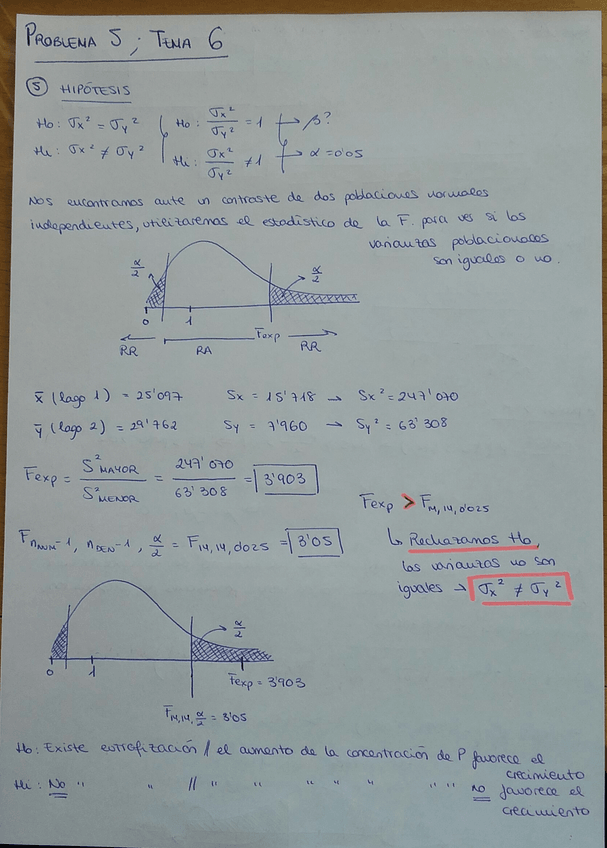 PROBLEMA 5 ; TEMA 6
5 HIPÓTESIS
Ho: σx² = σy² Ho: σx²/σy² = 1 → β?
H1: σx² ≠ σy² H1: σx²/σy² ≠ 1 → α = 0'05
Nos encontramos ante un contraste de dos poblaciones normales
independientes, utilizaremos el estadístico de la F. para ver si las
varianzas poblacionales
son iguales o no.
α/2 α/2
0 1 Fexp
RR RA RR
x̄ (lago 1) = 25'097 Sx = 15'718 → Sx² = 247'070
ȳ (lago 2) = 29'762 Sy = 7'960 → Sy² = 63'308
Fexp = S²MAYOR/S²MENOR = 247'070/63'308 = 3'903
Fexp > F14,14,0'025
Fn NUM-1, n DEN-1, α/2 = F14,14,0'025 = 3'05
↳ Rechazamos Ho,
las varianzas no son
iguales → σx² ≠ σy²
α/2
0 1 Fexp = 3'903
F14,14,α/2 = 3'05
Ho: Existe eutrofización // el aumento de la concentración de P favorece el
crecimiento
H1: No " " // " " " " " " " no favorece el
crecimiento